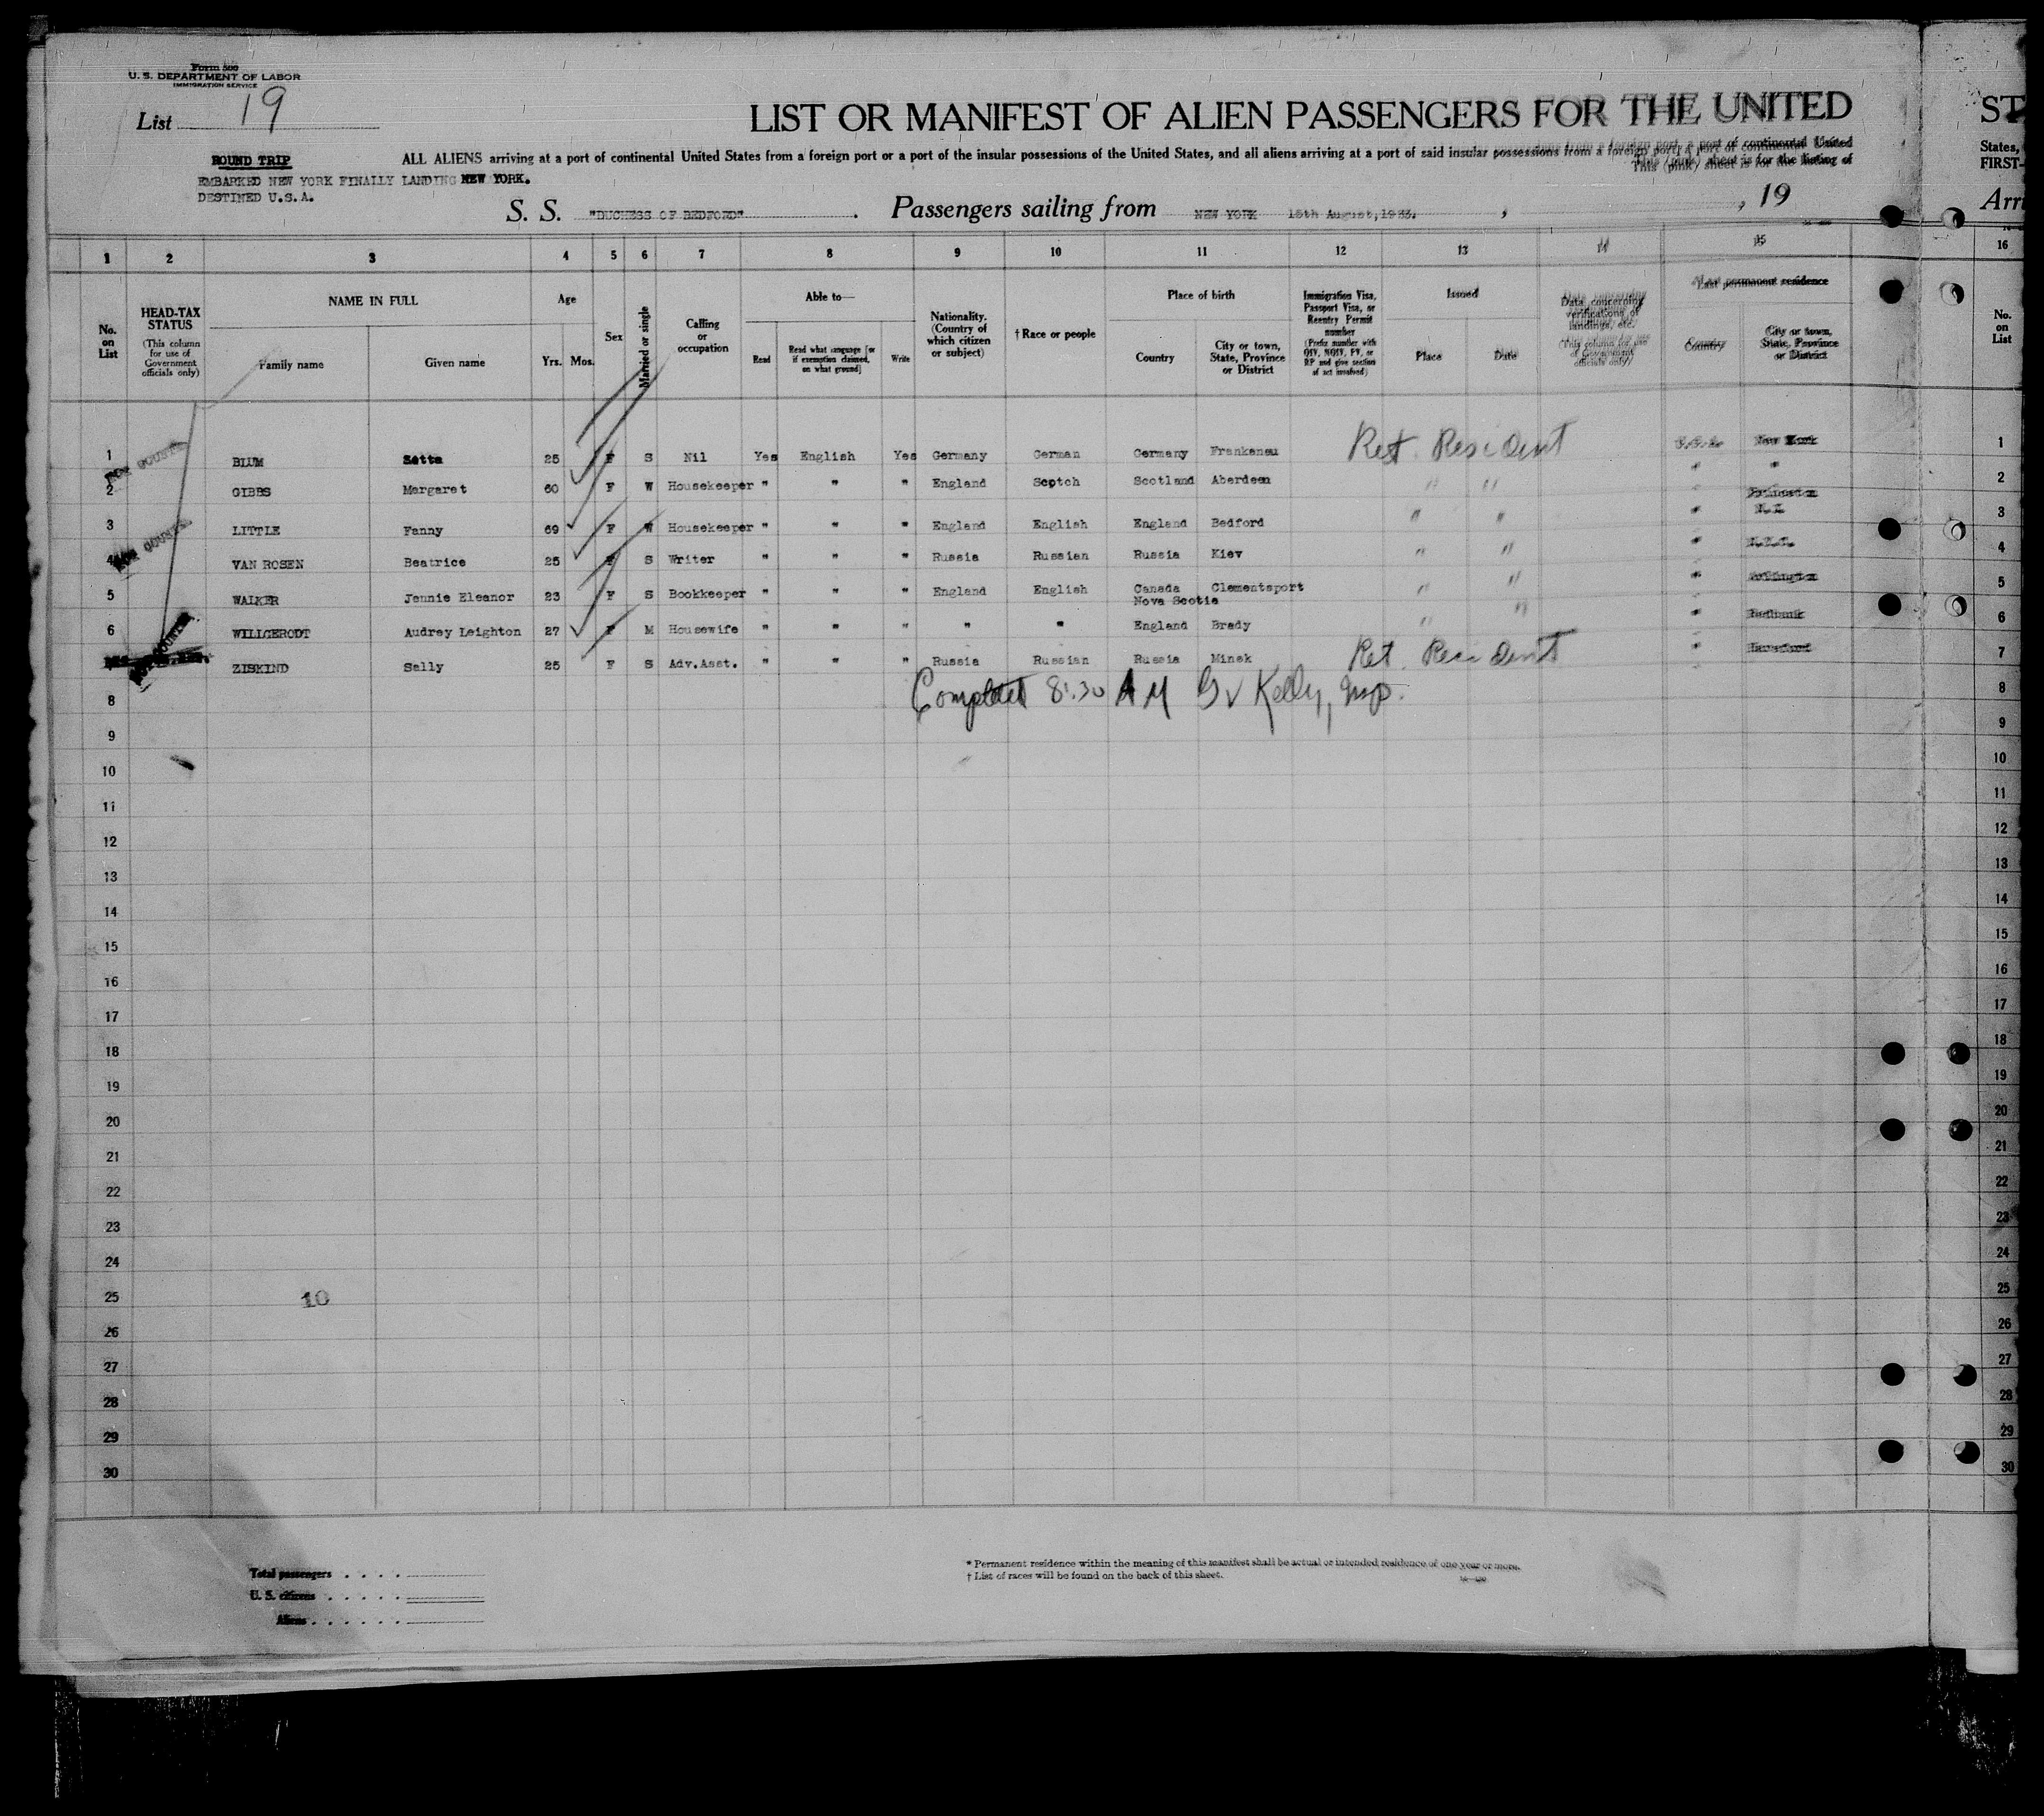 Form 500
U. S. DEPARTMENT OF LABOR
IMMIGRATION SERVICE
List 19
LIST OR MANIFEST OF ALIEN PASSENGERS FOR THE UNITED
ROUND TRIP
ALL ALIENS arriving at a port of continental United States from a foreign port or a port of the insular possessions of the United States, and all aliens arriving at a port of said insular possessions from a foreign port, a port of continental United
States,
This (pink) sheet is for the listing of
FIRST-
EMBARKED NEW YORK FINALLY LANDING NEW YORK.
DESTINED U.S.A.
S. S. "DUCHESS OF BEDFORD". Passengers sailing from NEW YORK 15th August, 1933. , , 19
1 2 3 4 5 6 7 8 9 10 11 12 13 14 15 16
No. on List
HEAD-TAX STATUS (This column for use of Government officials only)
NAME IN FULL
Family name
Given name
Age
Yrs. Mos.
Sex
Married or single
Calling or occupation
Able to—
Read
Read what language [or if exemption claimed, on what ground]
Write
Nationality. (Country of which citizen or subject)
† Race or people
Place of birth
Country
City or town, State, Province or District
Immigration Visa, Passport Visa, or Reentry Permit number (Prefix number with QIV, NQIV, PV, or RP and give section of act involved)
Issued
Place
Date
Data concerning verifications of landings, etc. (This column for use of Government officials only)
*Last permanent residence
Country
City or town, State, Province or District
No. on List
1 BLUM Setta 25 F S Nil Yes English Yes Germany German Germany Frankenau Ret. Resident U.S.A. New York 1
2 GIBBS Margaret 60 F W Housekeeper " " " England Scotch Scotland Aberdeen " " " " 2
3 LITTLE Fanny 69 F W Housekeeper " " " England English England Bedford " " " Princeton N.J. 3
4 VAN ROSEN Beatrice 25 F S Writer " " " Russia Russian Russia Kiev " " " 4
5 WALKER Jennie Eleanor 23 F S Bookkeeper " " " England English Canada Nova Scotia Clementsport " " " Arlington 5
6 WILLGERODT Audrey Leighton 27 F M Housewife " " " " " England Brady " " " Redbank 6
ZISKIND Sally 25 F S Adv.Asst. " " " Russia Russian Russia Minsk Ret. Resident " 7
Completed 8:30 AM G V Kelly, Insp.
8 8
9 9
10 10
11 11
12 12
13 13
14 14
15 15
16 16
17 17
18 18
19 19
20 20
21 21
22 22
23 23
24 24
25 10 25
26 26
27 27
28 28
29 29
30 30
Total passengers
U. S. citizens
Aliens
* Permanent residence within the meaning of this manifest shall be actual or intended residence of one year or more.
† List of races will be found on the back of this sheet.